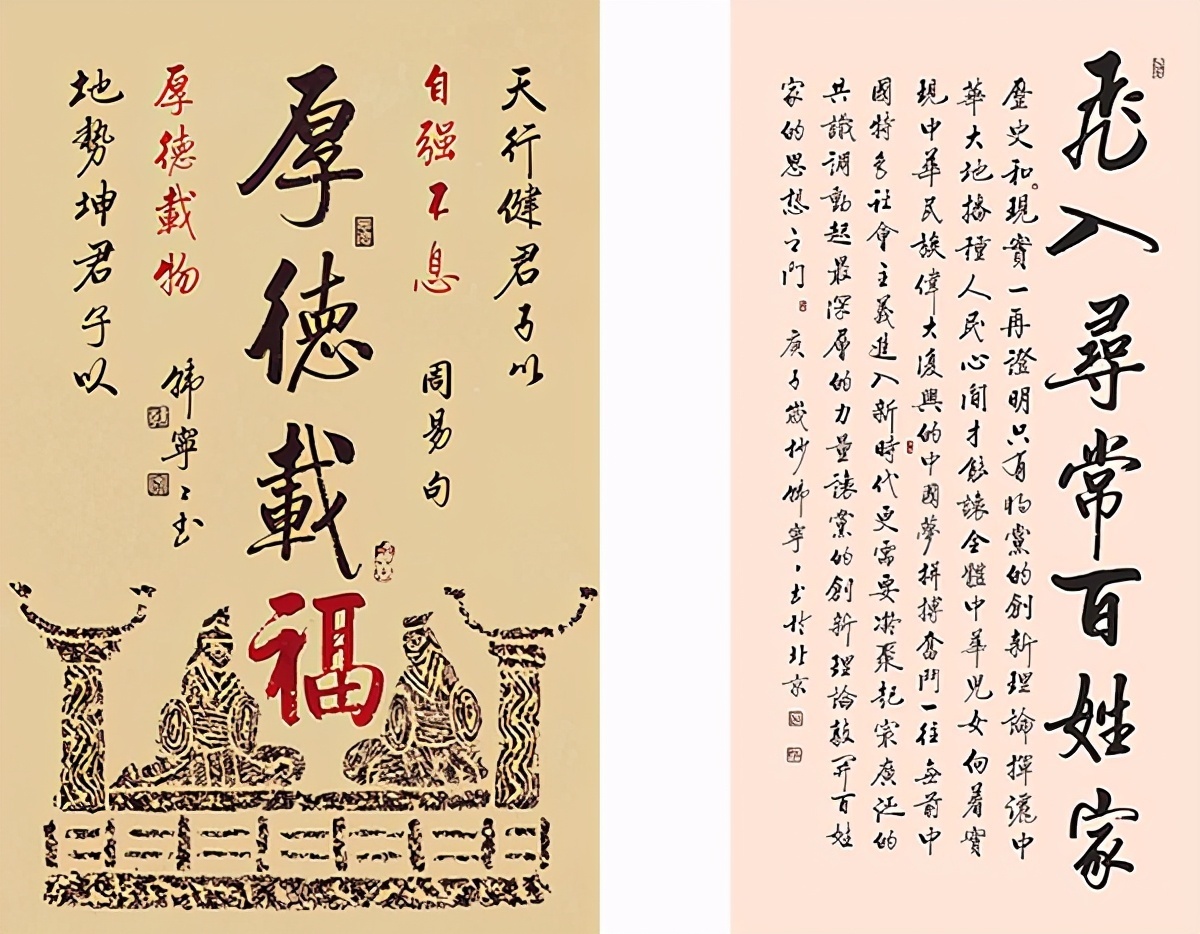 天行健君子以
自强不息 周易句
厚德載福
厚德載物 韩寧〻书
地勢坤君子以
飛入尋常百姓家
歷史和現實一再證明只有将黨的創新理論讓中
華大地播種人民心間才能讓全體中華兒女向着實
現中華民族偉大復興的中國夢拼搏奮鬥一往無前中
國特色社會主義進入新時代更需要凝聚起最廣泛的
共識調動起最深層的力量讓黨的創新理論敲開百姓
家的思想之門 庚子歲抄韩寧〻书於北京